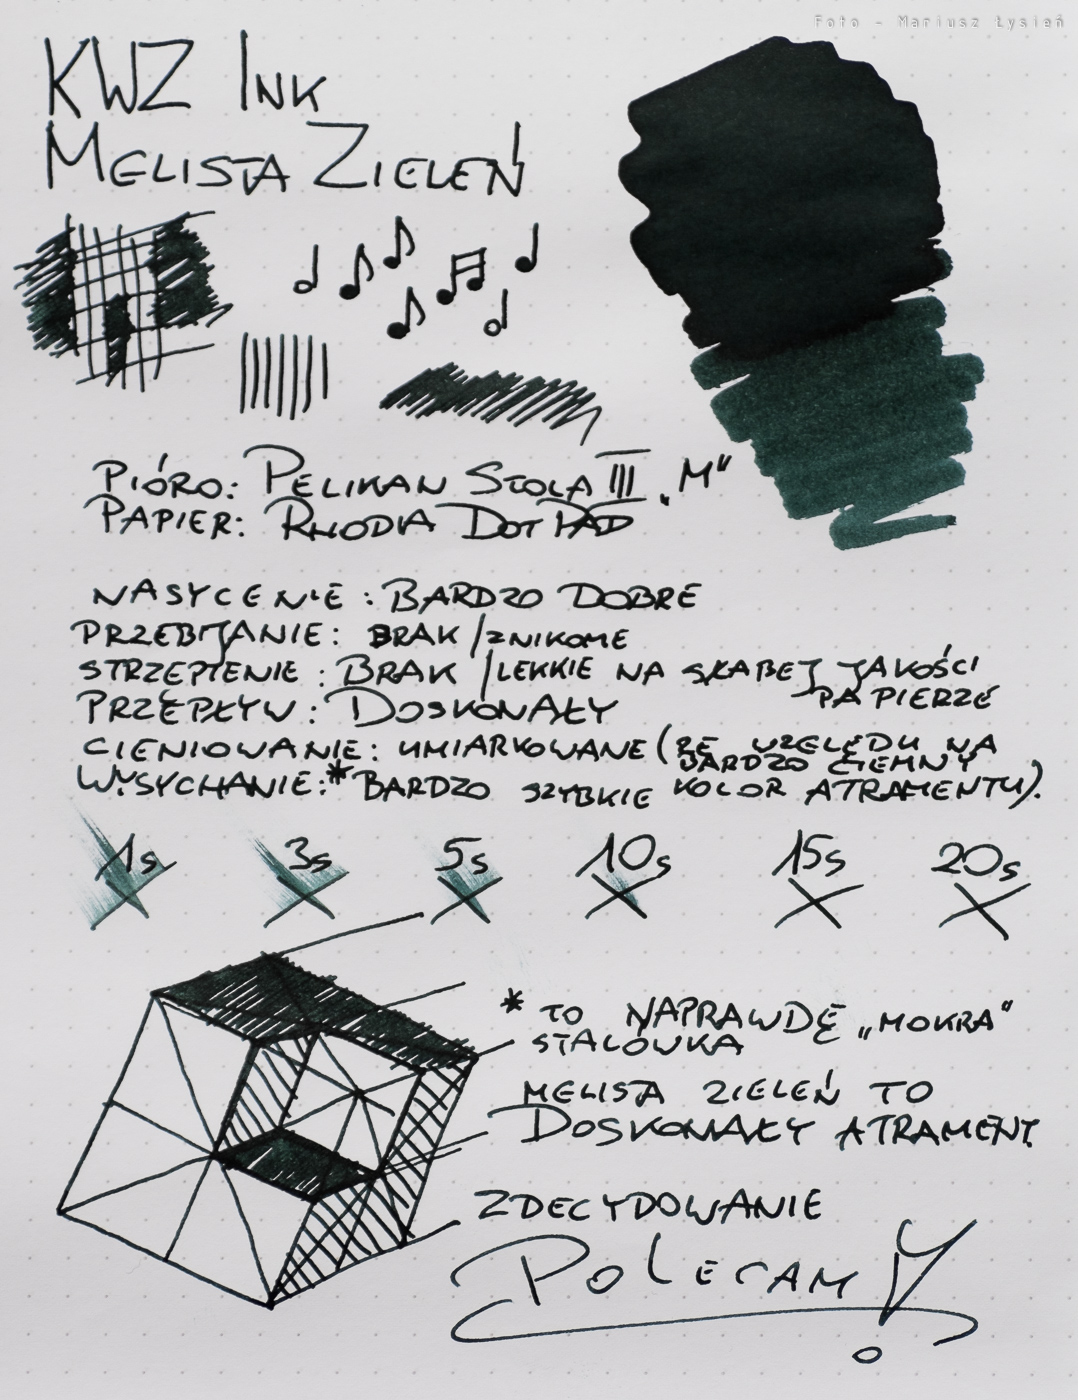 Foto - Mariusz Łysień
KWZ Ink
Melista Zieleń
Pióro: Pelikan Stola III „M"
Papier: Rhodia Dot Pad
Nasycenie: Bardzo dobre
Przebijanie: Brak/znikome
Strzępienie: Brak/lekkie na słabej jakości
papierze
Przepływ: Doskonały
Cieniowanie: umiarkowane (ze względu na
bardzo ciemny
Wysychanie:* Bardzo szybkie kolor atramentu).
1s 3s 5s 10s 15s 20s
* to naprawdę „mokra"
stalówka
Melista Zieleń to
Doskonały atrament.
Zdecydowanie
Polecam!